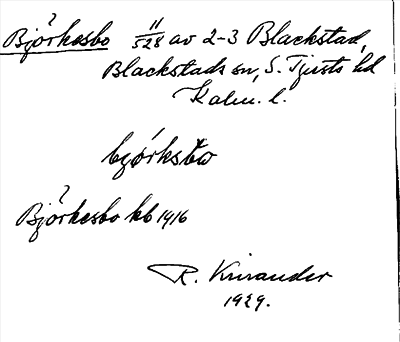 Björkesbo 11/528 av 2-3 Blackstad,
Blackstads sn, S. Tjusts hd
Kalm. l.
Björkesbo kb 1916
R. Kinander
1929.